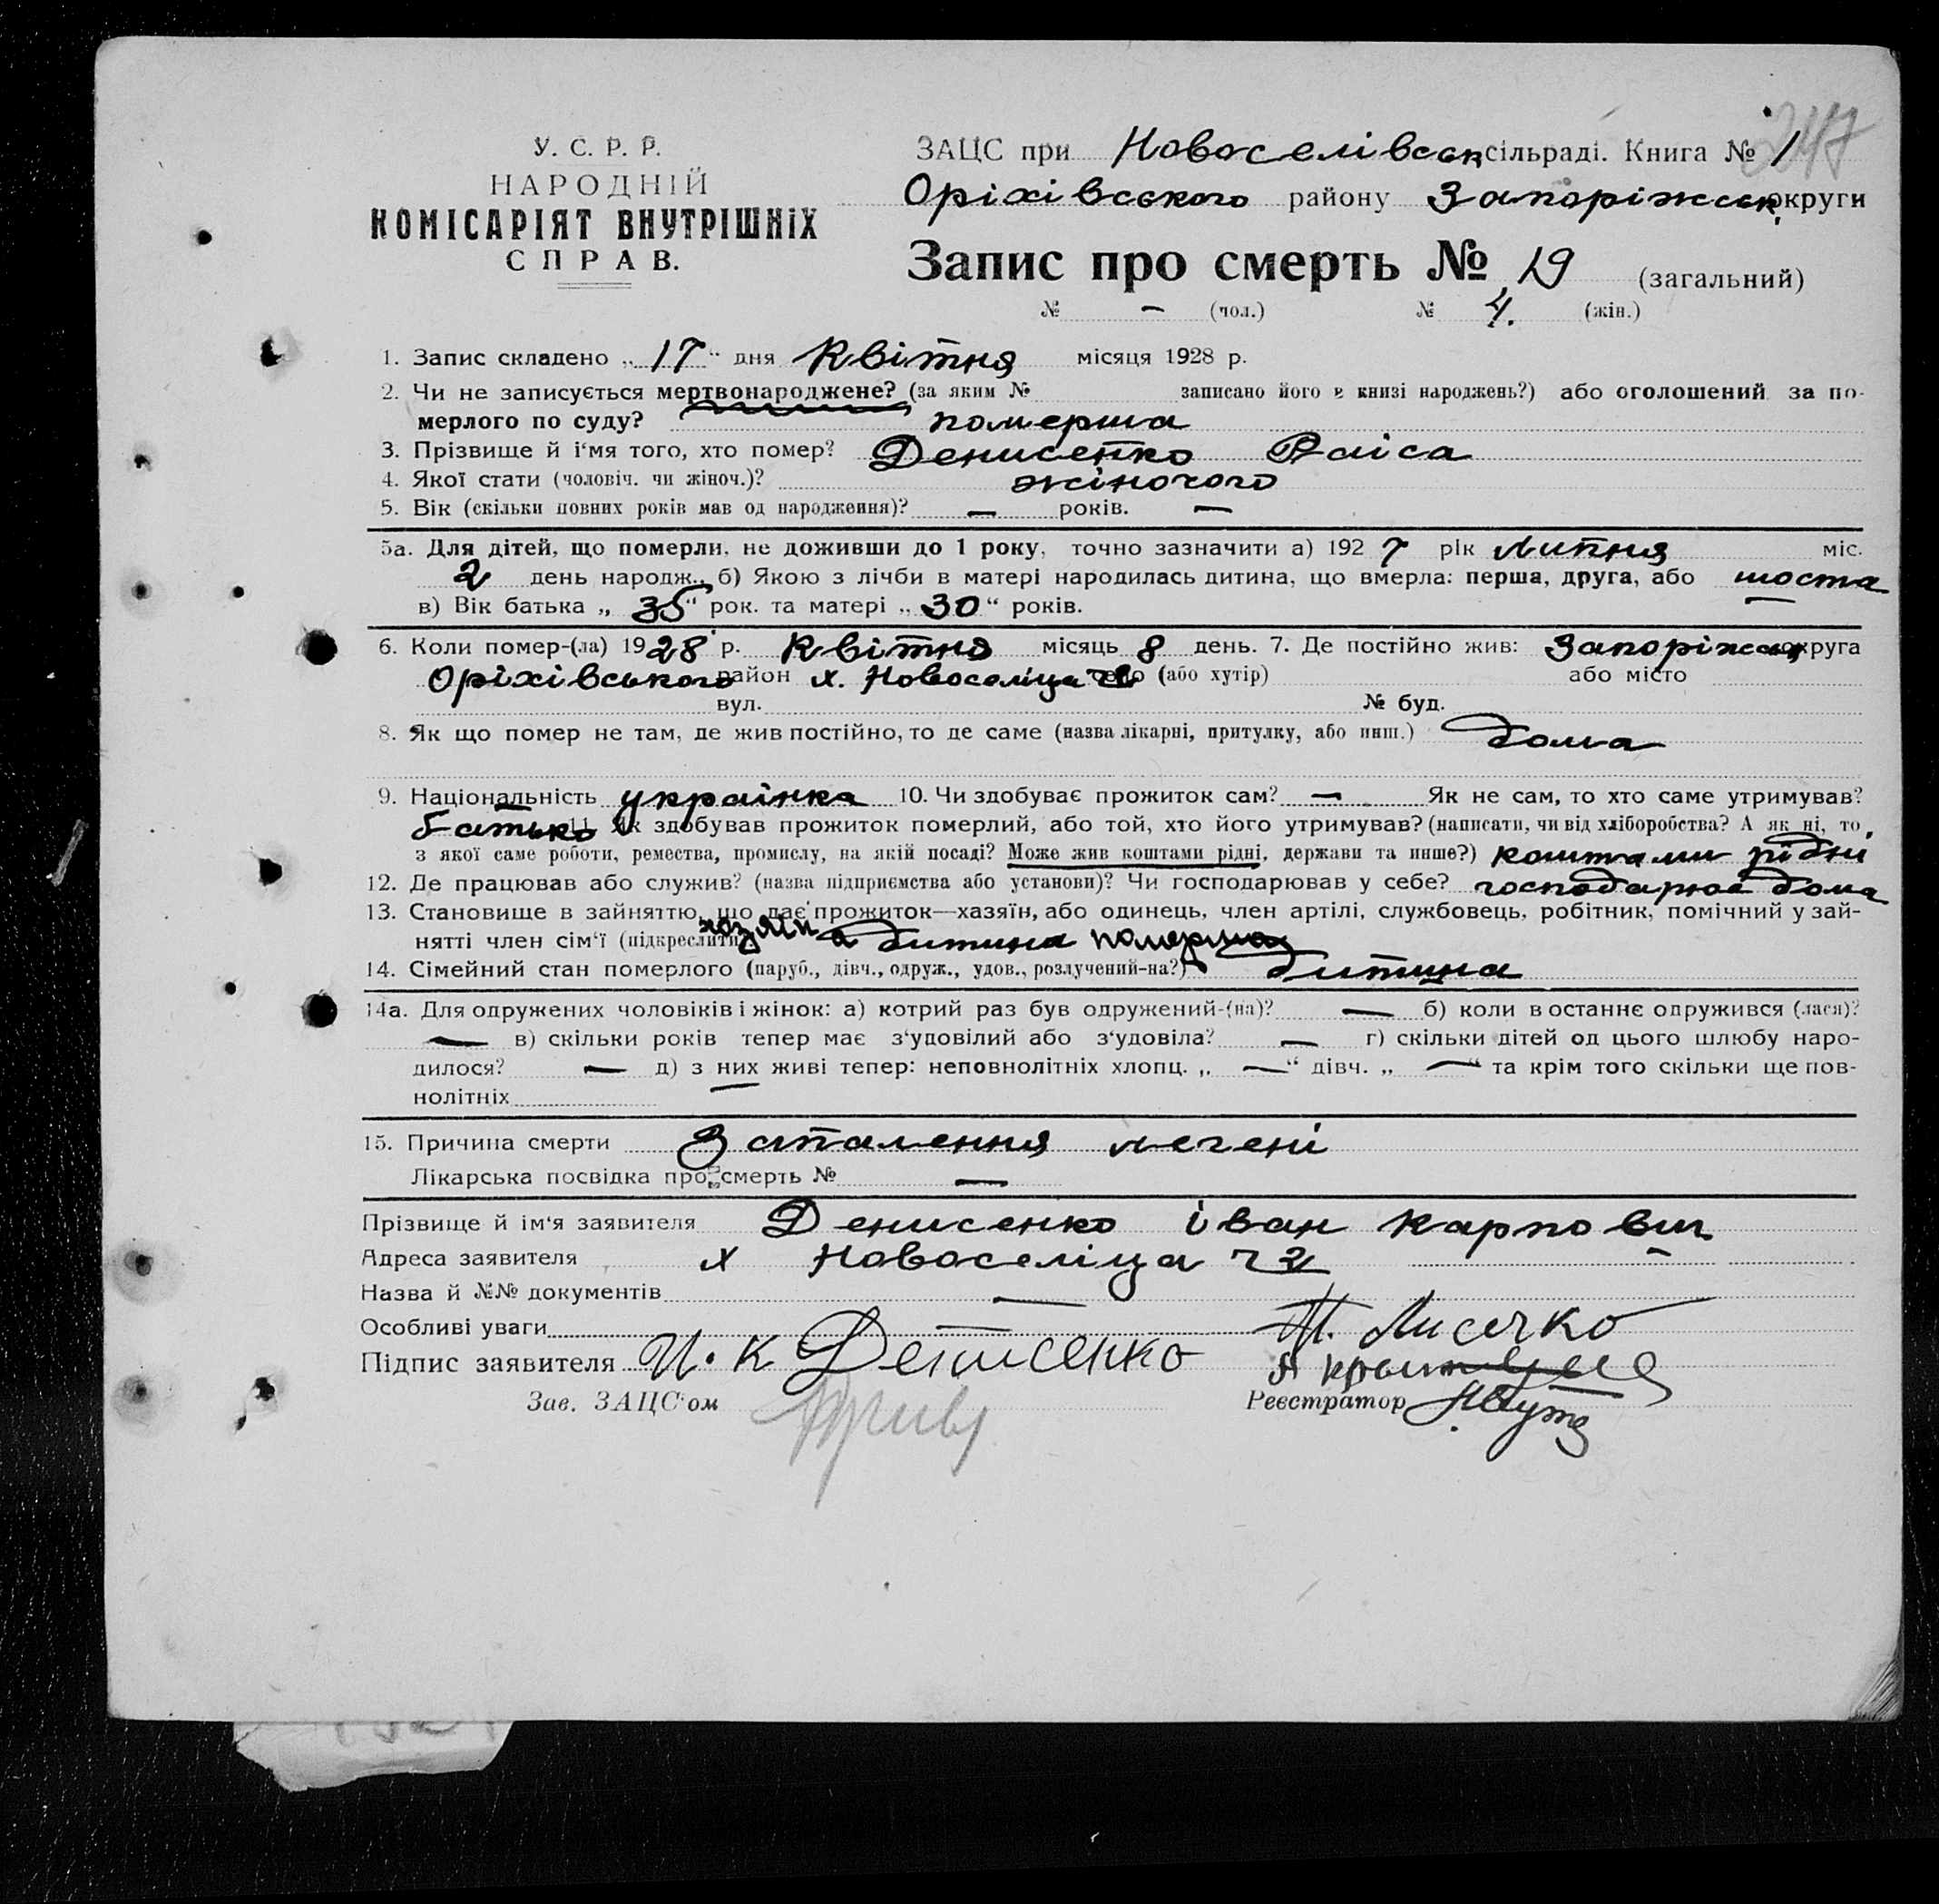 247
У. С. Р. Р.
НАРОДНІЙ
КОМІСАРІЯТ ВНУТРІШНІХ
СПРАВ.
ЗАЦС при Новоселівськ сільраді. Книга № 1
Оріхівського району Запоріжськ. округи
Запис про смерть № 19 (загальний)
№ — (чол.) № 4. (жін.)
1. Запис складено „17" дня Квітня місяця 1928 р.
2. Чи не записується мертвонароджене? (за яким № записано його в книзі народжень?) або оголошений за по-
мерлого по суду? померша
3. Прізвище й і'мя того, хто помер? Денисенко Раіса
4. Якої стати (чоловіч. чи жіноч.)? жіночого
5. Вік (скільки повних років мав од народження)? — років. —
5а. Для дітей, що померли, не доживши до 1 року, точно зазначити а) 1927 рік Липня міс.
2 день народж., б) Якою з лічби в матері народилась дитина, що вмерла: перша, друга, або шоста
в) Вік батька „35" рок. та матері „30" років.
6. Коли помер-(ла) 1928 р. Квітня місяць 8 день. 7. Де постійно жив: Запоріжськ округа
Оріхівського район х. Новоселіца ч2 село (або хутір) або місто
вул. № буд.
8. Як що помер не там, де жив постійно, то де саме (назва лікарні, притулку, або инш.) дома
9. Національність украінка 10. Чи здобуває прожиток сам? — Як не сам, то хто саме утримував?
батько 11. Як здобував прожиток померлий, або той, хто його утримував? (написати, чи від хліборобства? А як ні, то
з якої саме роботи, ремества, промислу, на якій посаді? Може жив коштами рідні, держави та инше?) коштами рідні
12. Де працював або служив? (назва підприємства або установи)? Чи господарював у себе? господарює дома
13. Становище в зайняттю, що дає прожиток—хазяїн, або одинець, член артілі, службовець, робітник, помічний у зай-
нятті член сім'ї (підкреслити) хозяїн а дитина померша
14. Сімейний стан померлого (паруб., дівч., одруж., удов., розлучений-на?) дитина
14а. Для одружених чоловіків і жінок: а) котрий раз був одружений-(на)? — б) коли в останнє одружився (лася)?
— в) скільки років тепер має з'удовілий або з'удовіла? — г) скільки дітей од цього шлюбу наро-
дилося? — д) з них живі тепер: неповнолітніх хлопц. „—" дівч. „—" та крім того скільки ще пов-
нолітніх —
15. Причина смерти Запалення легені
Лікарська посвідка про смерть № —
Прізвище й ім'я заявителя Денисенко Іван Карпович
Адреса заявителя х Новоселіца ч2 —
Назва й №№ документів —
Особливі уваги — П. Лисечко
Підпис заявителя И. К Денисенко
Зав. ЗАЦС'ом Реєстратор